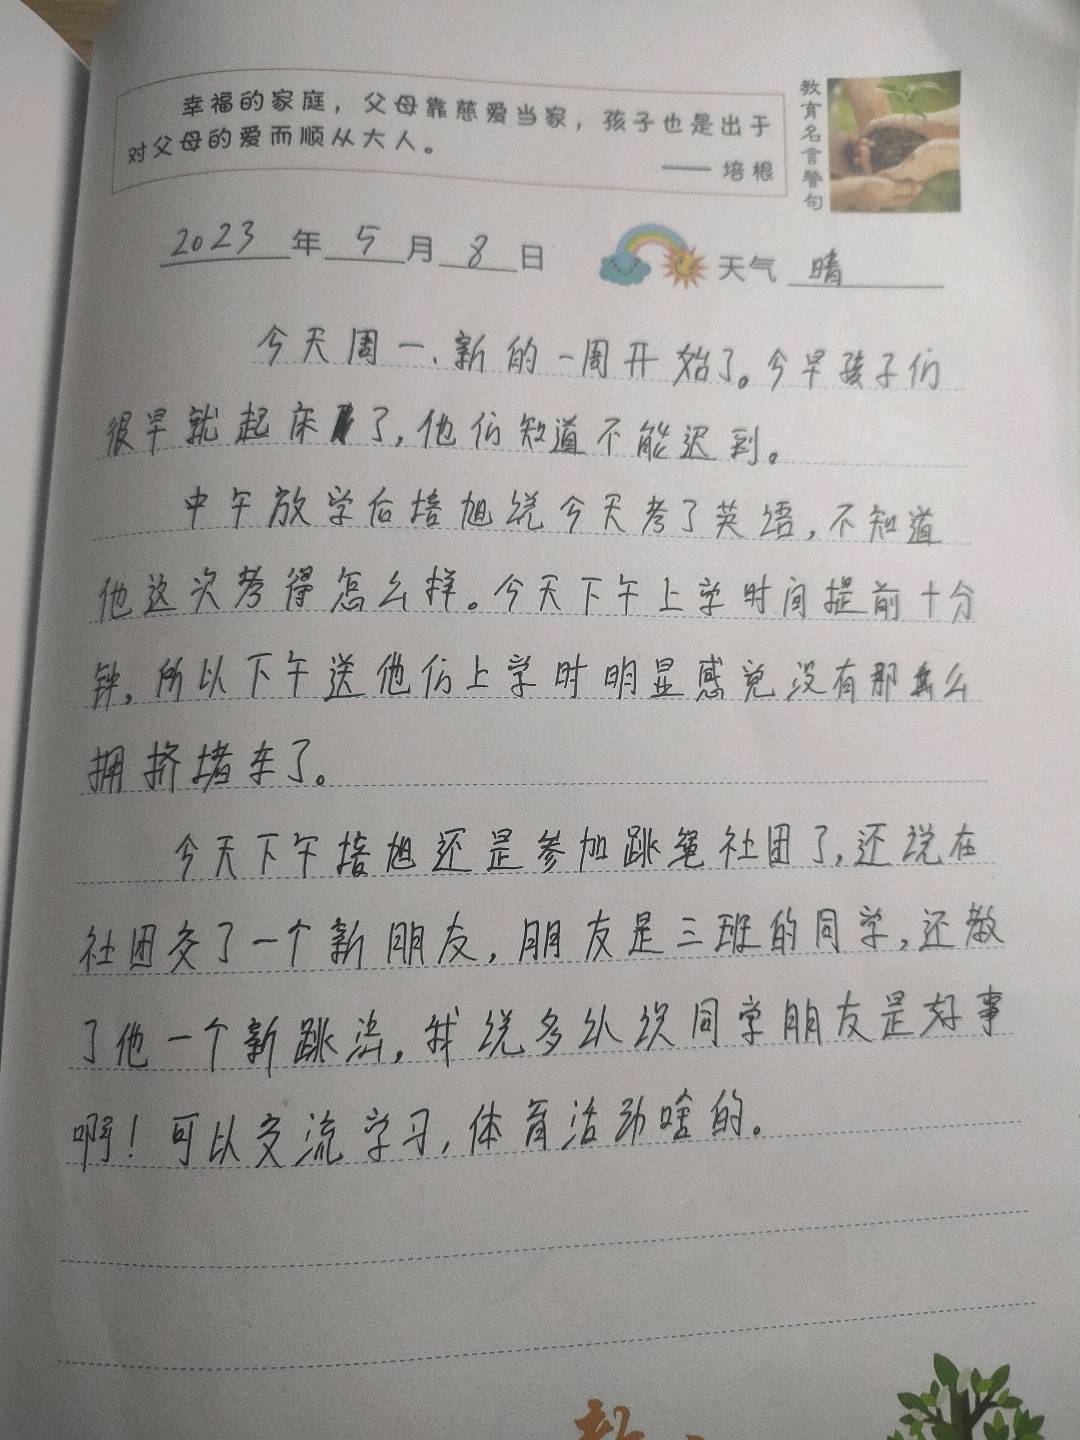 幸福的家庭，父母靠慈爱当家，孩子也是出于
对父母的爱而顺从大人。
—— 培根
教育名言警句
2023年5月8日 天气 晴
今天周一、新的一周开始了。今早孩子们
很早就起床了，他们知道不能迟到。
中午放学后培旭说今天考了英语，不知道
他这次考得怎么样。今天下午上学时间提前十分
钟，所以下午送他们上学时明显感觉没有那么
拥挤堵车了。
今天下午培旭还是参加跳绳社团了，还说在
社团交了一个新朋友，朋友是三班的同学，还教
了他一个新跳法，我说多认识同学朋友是好事
啊！可以交流学习，体育活动啥的。